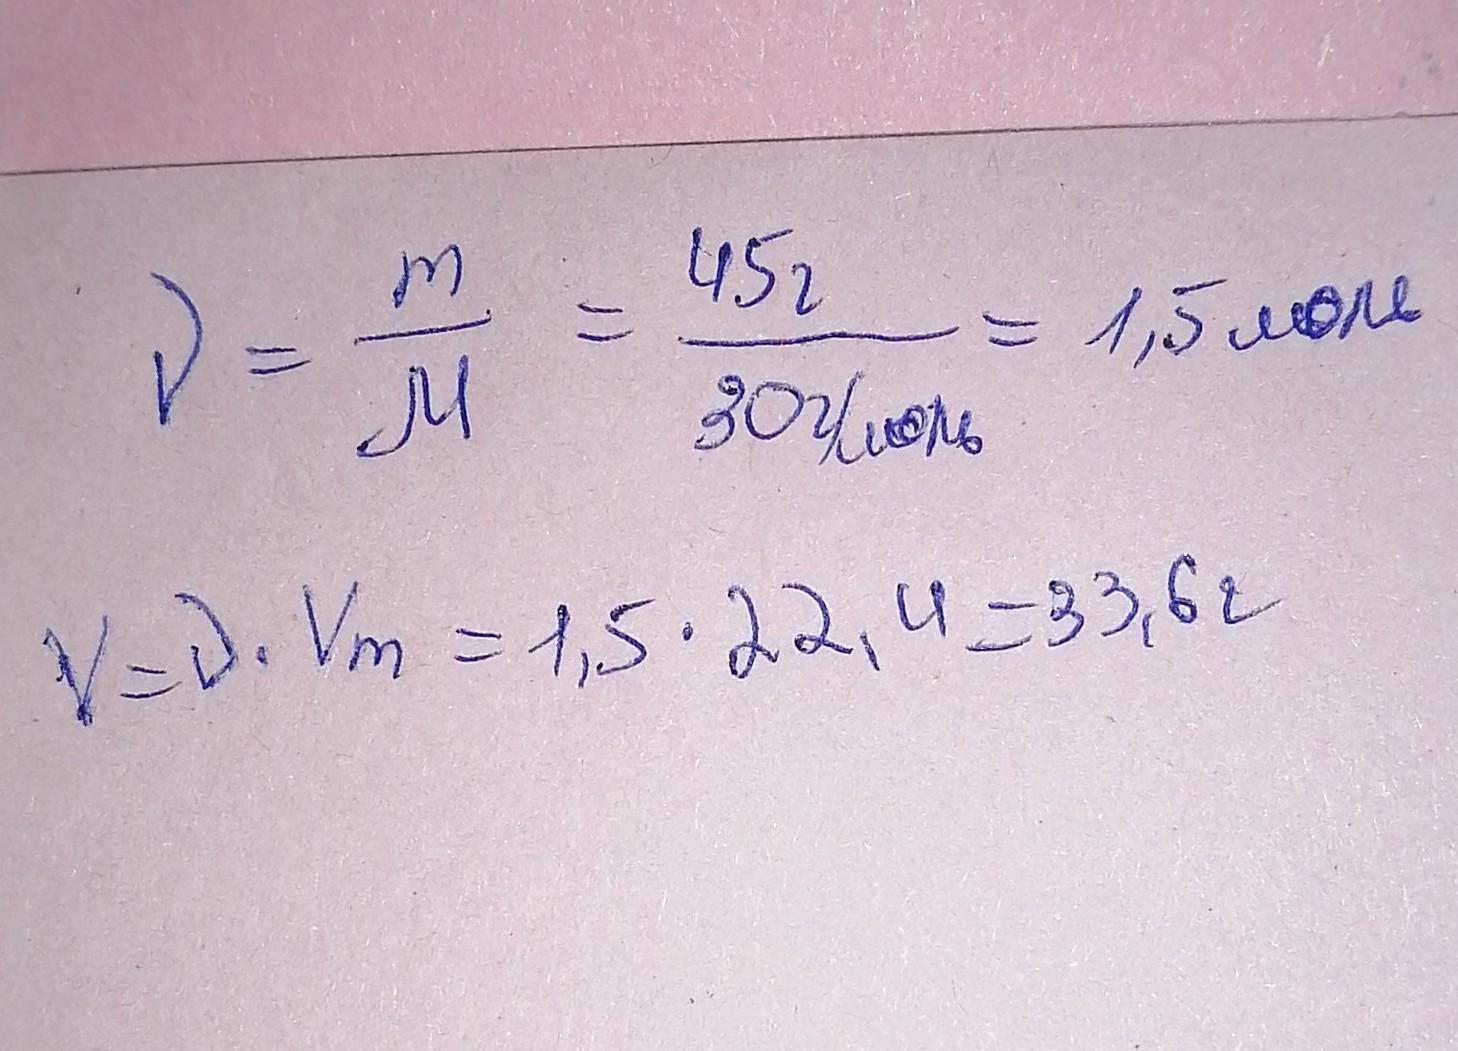 ν = m/M = 45г/30г/моль = 1,5 моль
V = ν · Vm = 1,5 · 22,4 = 33,6 г